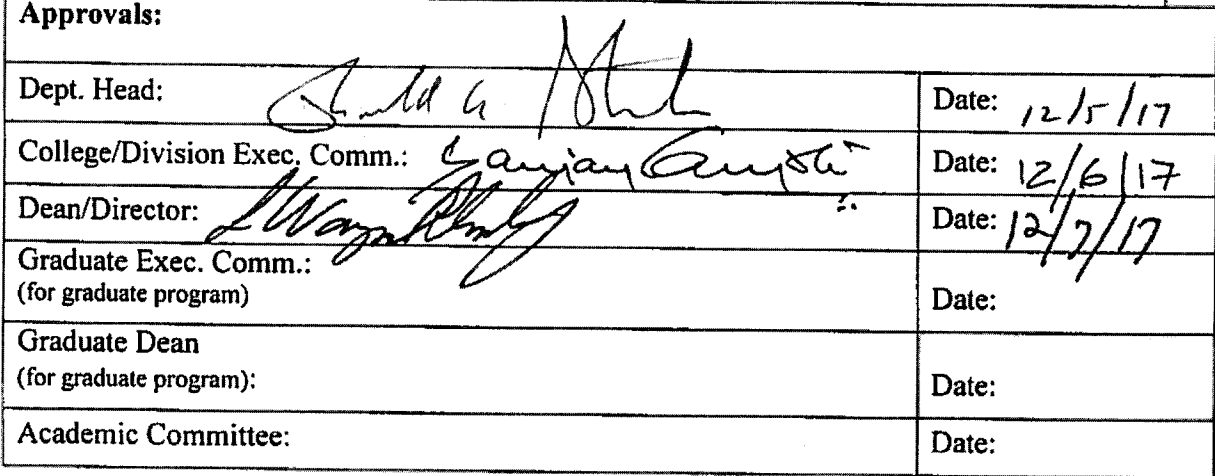 Approvals:
Dept. Head: Date: 12/5/17
College/Division Exec. Comm.: Sanjay Date: 12/6/17
Dean/Director: Wayne Date: 12/7/17
Graduate Exec. Comm.:
(for graduate program) Date:
Graduate Dean
(for graduate program): Date:
Academic Committee: Date: